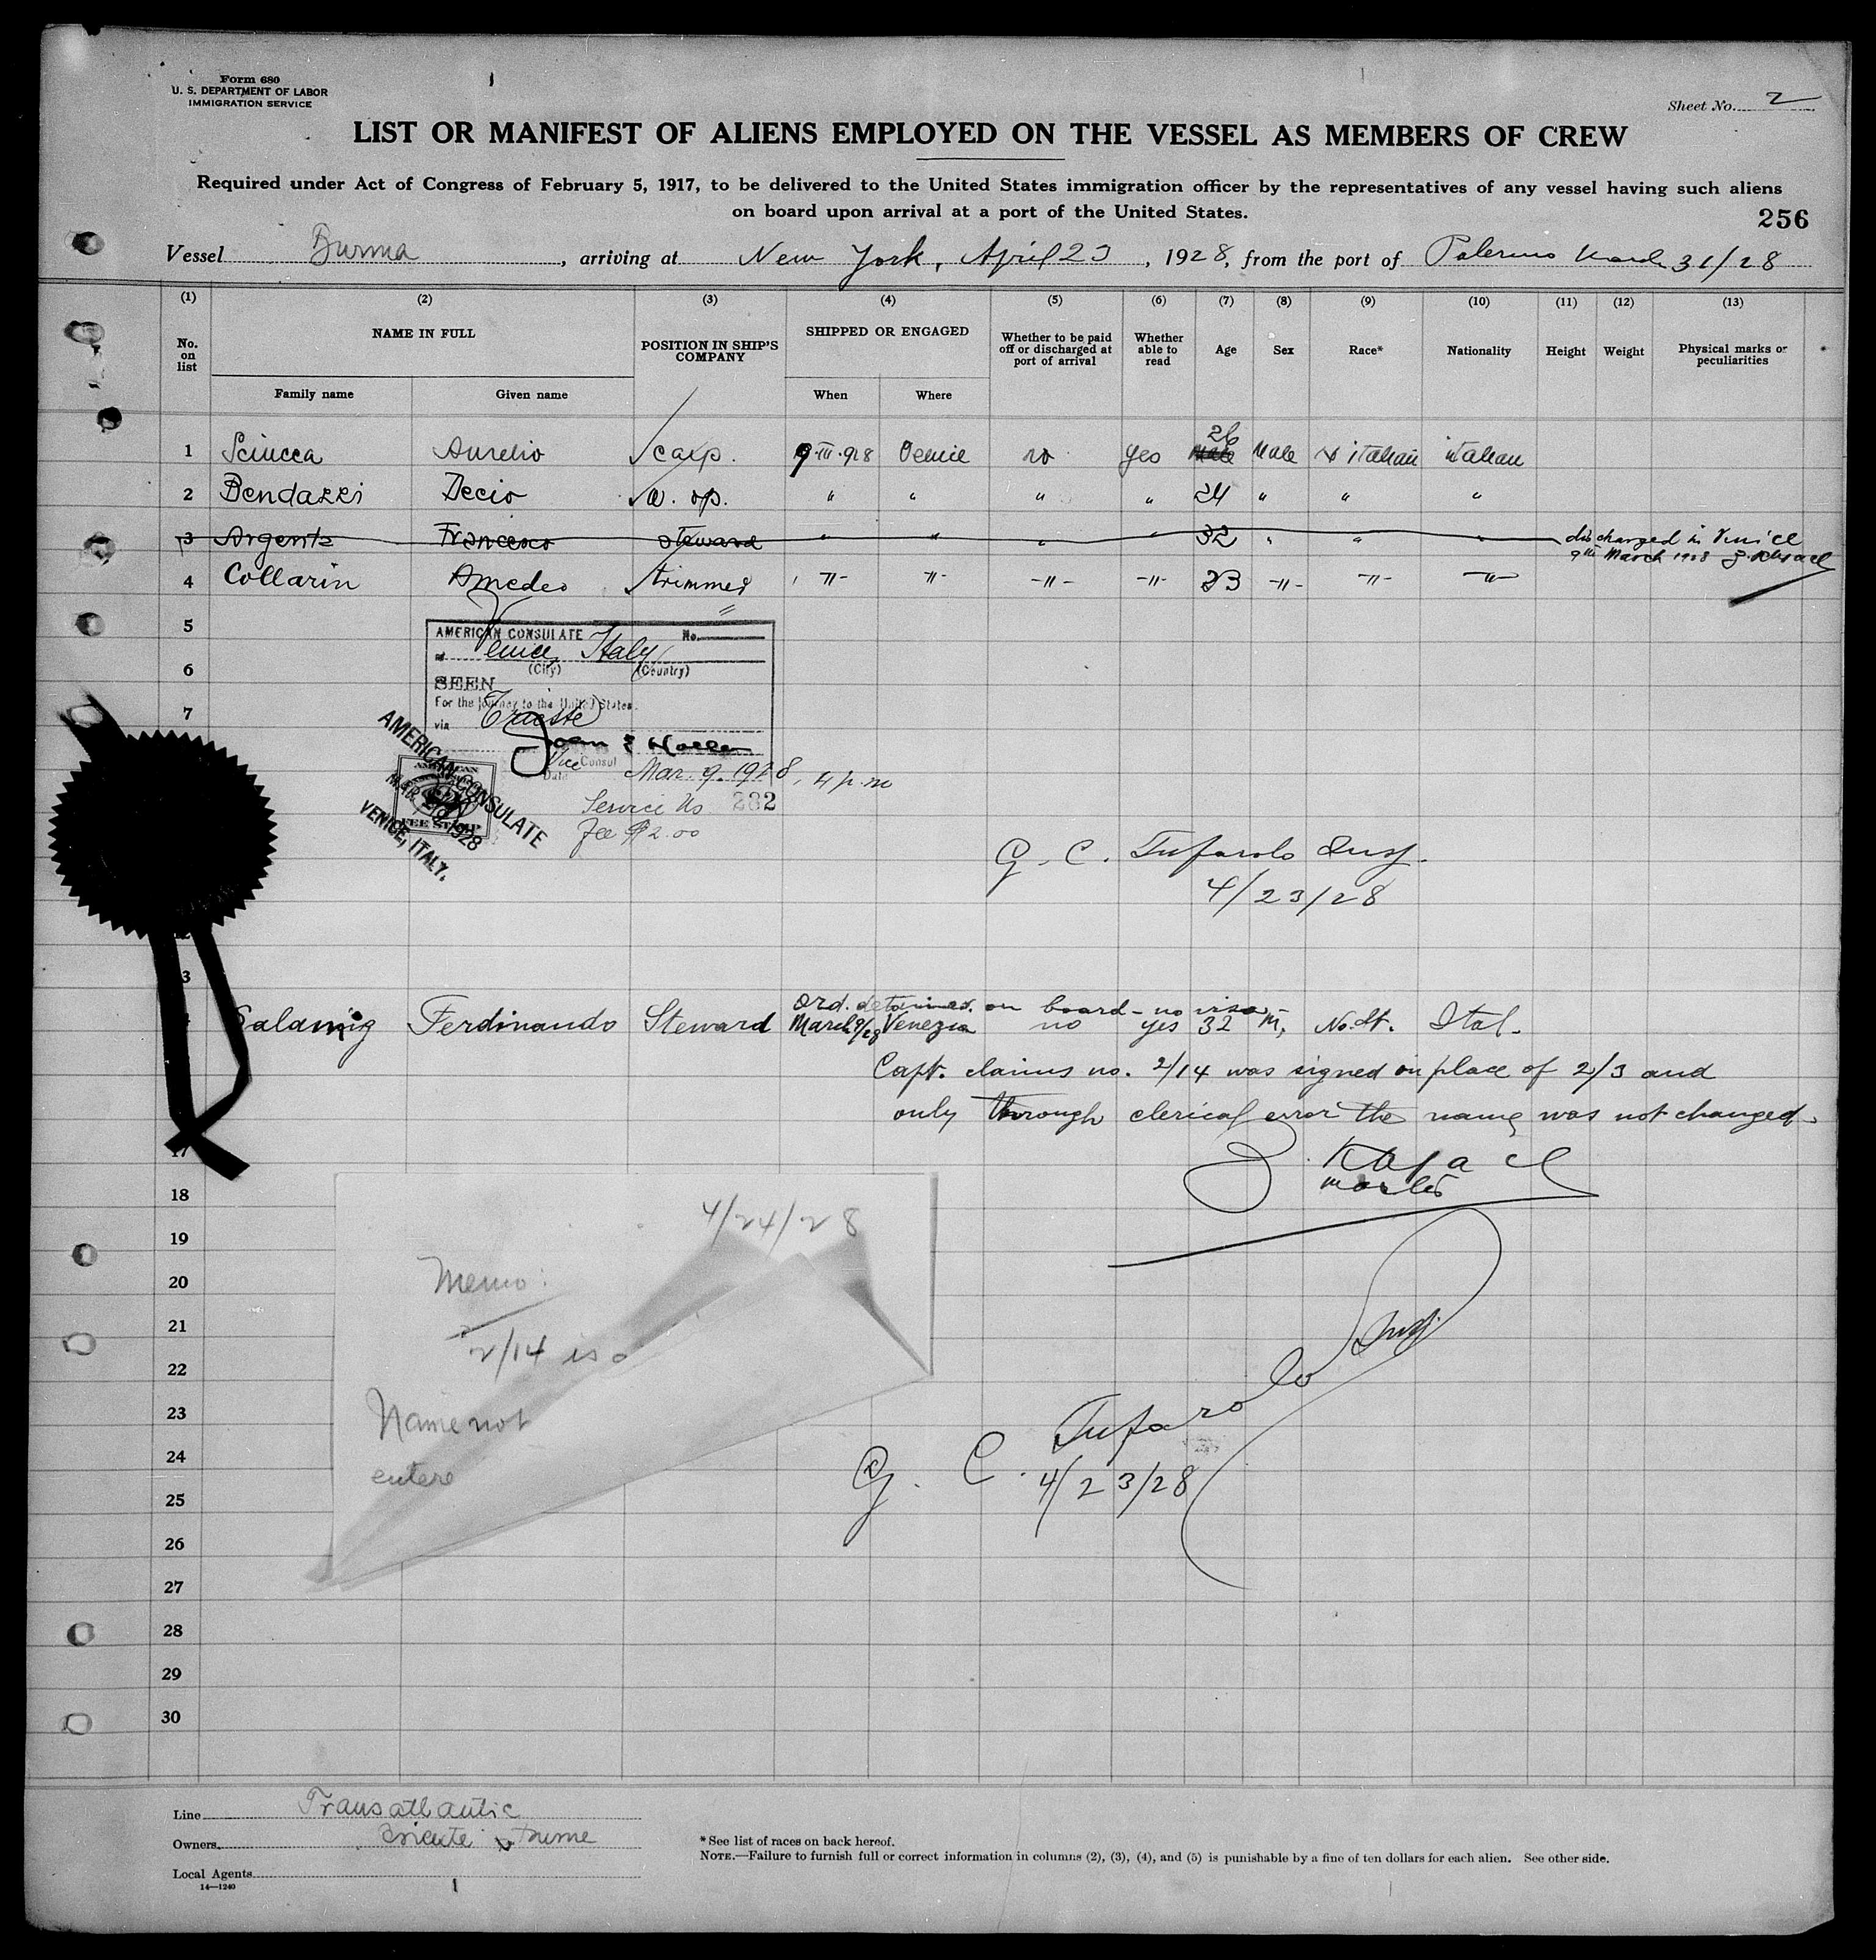 Form 680
U. S. DEPARTMENT OF LABOR
IMMIGRATION SERVICE
Sheet No. 2
LIST OR MANIFEST OF ALIENS EMPLOYED ON THE VESSEL AS MEMBERS OF CREW
Required under Act of Congress of February 5, 1917, to be delivered to the United States immigration officer by the representatives of any vessel having such aliens
on board upon arrival at a port of the United States.
256
Vessel Burma, arriving at New York, April 23, 1928, from the port of Palermo March 31/28
(1) (2) (3) (4) (5) (6) (7) (8) (9) (10) (11) (12) (13)
No. on list NAME IN FULL POSITION IN SHIP'S COMPANY SHIPPED OR ENGAGED Whether to be paid off or discharged at port of arrival Whether able to read Age Sex Race* Nationality Height Weight Physical marks or peculiarities
Family name Given name When Where
1 Sciucca Aurelio carp. 9.III.928 Venice no yes 26 Male italian italian
2 Bendazzi Decio w. op. " " " " 24 " " "
3 Argenti Francesco steward " " " " 32 " " " discharged in Venice
9th March 1928
4 Collarin Amedeo trimmer -"- -"- -"- -"- 23 -"- -"- -"-
5
AMERICAN CONSULATE No.
at Venice, Italy
6
(City) (Country)
SEEN
For the journey to the United States.
7
via Trieste
Vice Consul
Date Mar. 9. 1928, 4 p.m
Service No 282
Fee $2.00
AMERICAN CONSULATE
MAR 9 1928
VENICE, ITALY.
AMERICAN
FEE STAMP
G. C. Tufarolo Insp.
4/23/28
3
Ord. detained on board - no visa
Salamig Ferdinando Steward March 9/28 Venezia no yes 32 M, No. It. Ital.
Capt. claims no. 2/14 was signed in place of 2/3 and
only through clerical error the name was not changed.
17
master
18
4/24/28
19
Memo:
20
21
2/14 is a
22
Name not
23
entere
24
G. C. Tufarolo Insp.
4/23/28
25
26
27
28
29
30
Line Transatlantic
Owners
Local Agents
14—1240
* See list of races on back hereof.
NOTE.—Failure to furnish full or correct information in columns (2), (3), (4), and (5) is punishable by a fine of ten dollars for each alien. See other side.